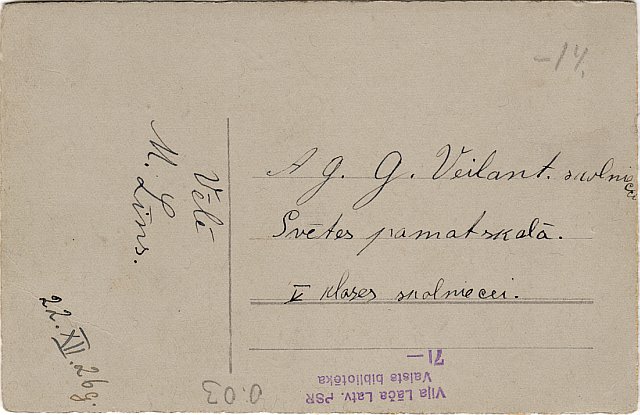 -14.
A. g. G. Veilant. skolniecei
Svētes pamatskolā.
V klases skolniecei.
Vēlē
M. Līns.
22. XII. 26g.
0.03
Viļa Lāča Latv. PSR
Valsts bibliotēka
71—